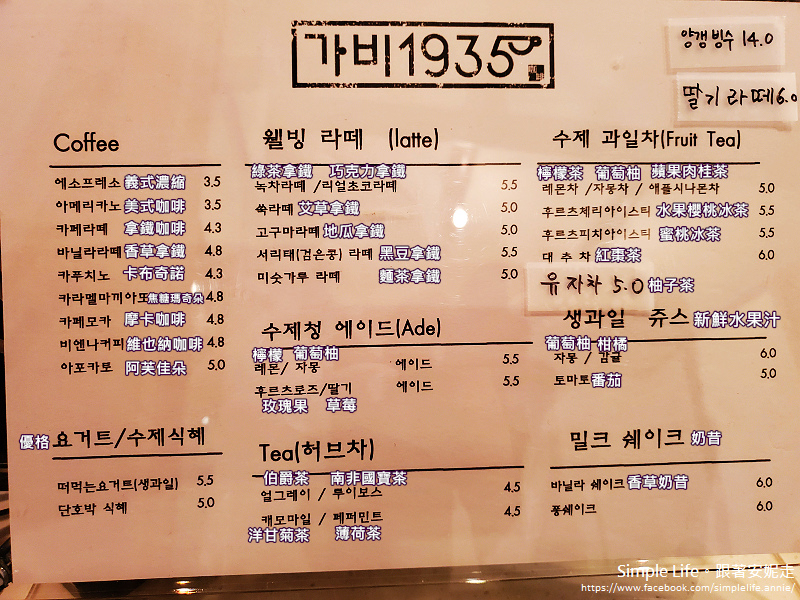 가비1935
양갱빙수 14.0
딸기라떼 6.0
Coffee
에소프레소 義式濃縮 3.5
아메리카노 美式咖啡 3.5
카페라떼 拿鐵咖啡 4.3
바닐라라떼 香草拿鐵 4.8
카푸치노 卡布奇諾 4.3
카라멜마끼아또 焦糖瑪奇朵 4.8
카페모카 摩卡咖啡 4.8
비엔나커피 維也納咖啡 4.8
아포카토 阿芙佳朵 5.0
優格 요거트/수제식혜
떠먹는요거트(생과일) 5.5
단호박 식혜 5.0
웰빙 라떼 (latte)
綠茶拿鐵 巧克力拿鐵
녹차라떼 /리얼초코라떼 5.5
쑥라떼 艾草拿鐵 5.0
고구마라떼 地瓜拿鐵 5.0
서리태(검은콩) 라떼 黑豆拿鐵 5.5
미숫가루 라떼 麵茶拿鐵 5.0
수제청 에이드(Ade)
檸檬 葡萄柚
레몬/ 자몽 에이드 5.5
후르츠로즈/딸기 에이드 5.5
玫瑰果 草莓
Tea(허브차)
伯爵茶 南非國寶茶
얼그레이 / 루이보스 4.5
캐모마일 / 페퍼민트 4.5
洋甘菊茶 薄荷茶
수제 과일차(Fruit Tea)
檸檬茶 葡萄柚 蘋果肉桂茶
레몬차 /자몽차 / 애플시나몬차 5.0
후르츠체리아이스티 水果櫻桃冰茶 5.5
후르츠피치아이스티 蜜桃冰茶 5.5
대 추 차 紅棗茶 6.0
유자차 5.0 柚子茶
생과일 쥬스 新鮮水果汁
葡萄柚 柑橘
자몽 / 감귤 6.0
토마토 番茄 5.0
밀크 쉐이크 奶昔
바닐라 쉐이크 香草奶昔 6.0
퐁쉐이크 6.0
Simple Life。跟著安妮走
https://www.facebook.com/simplelife.annie/